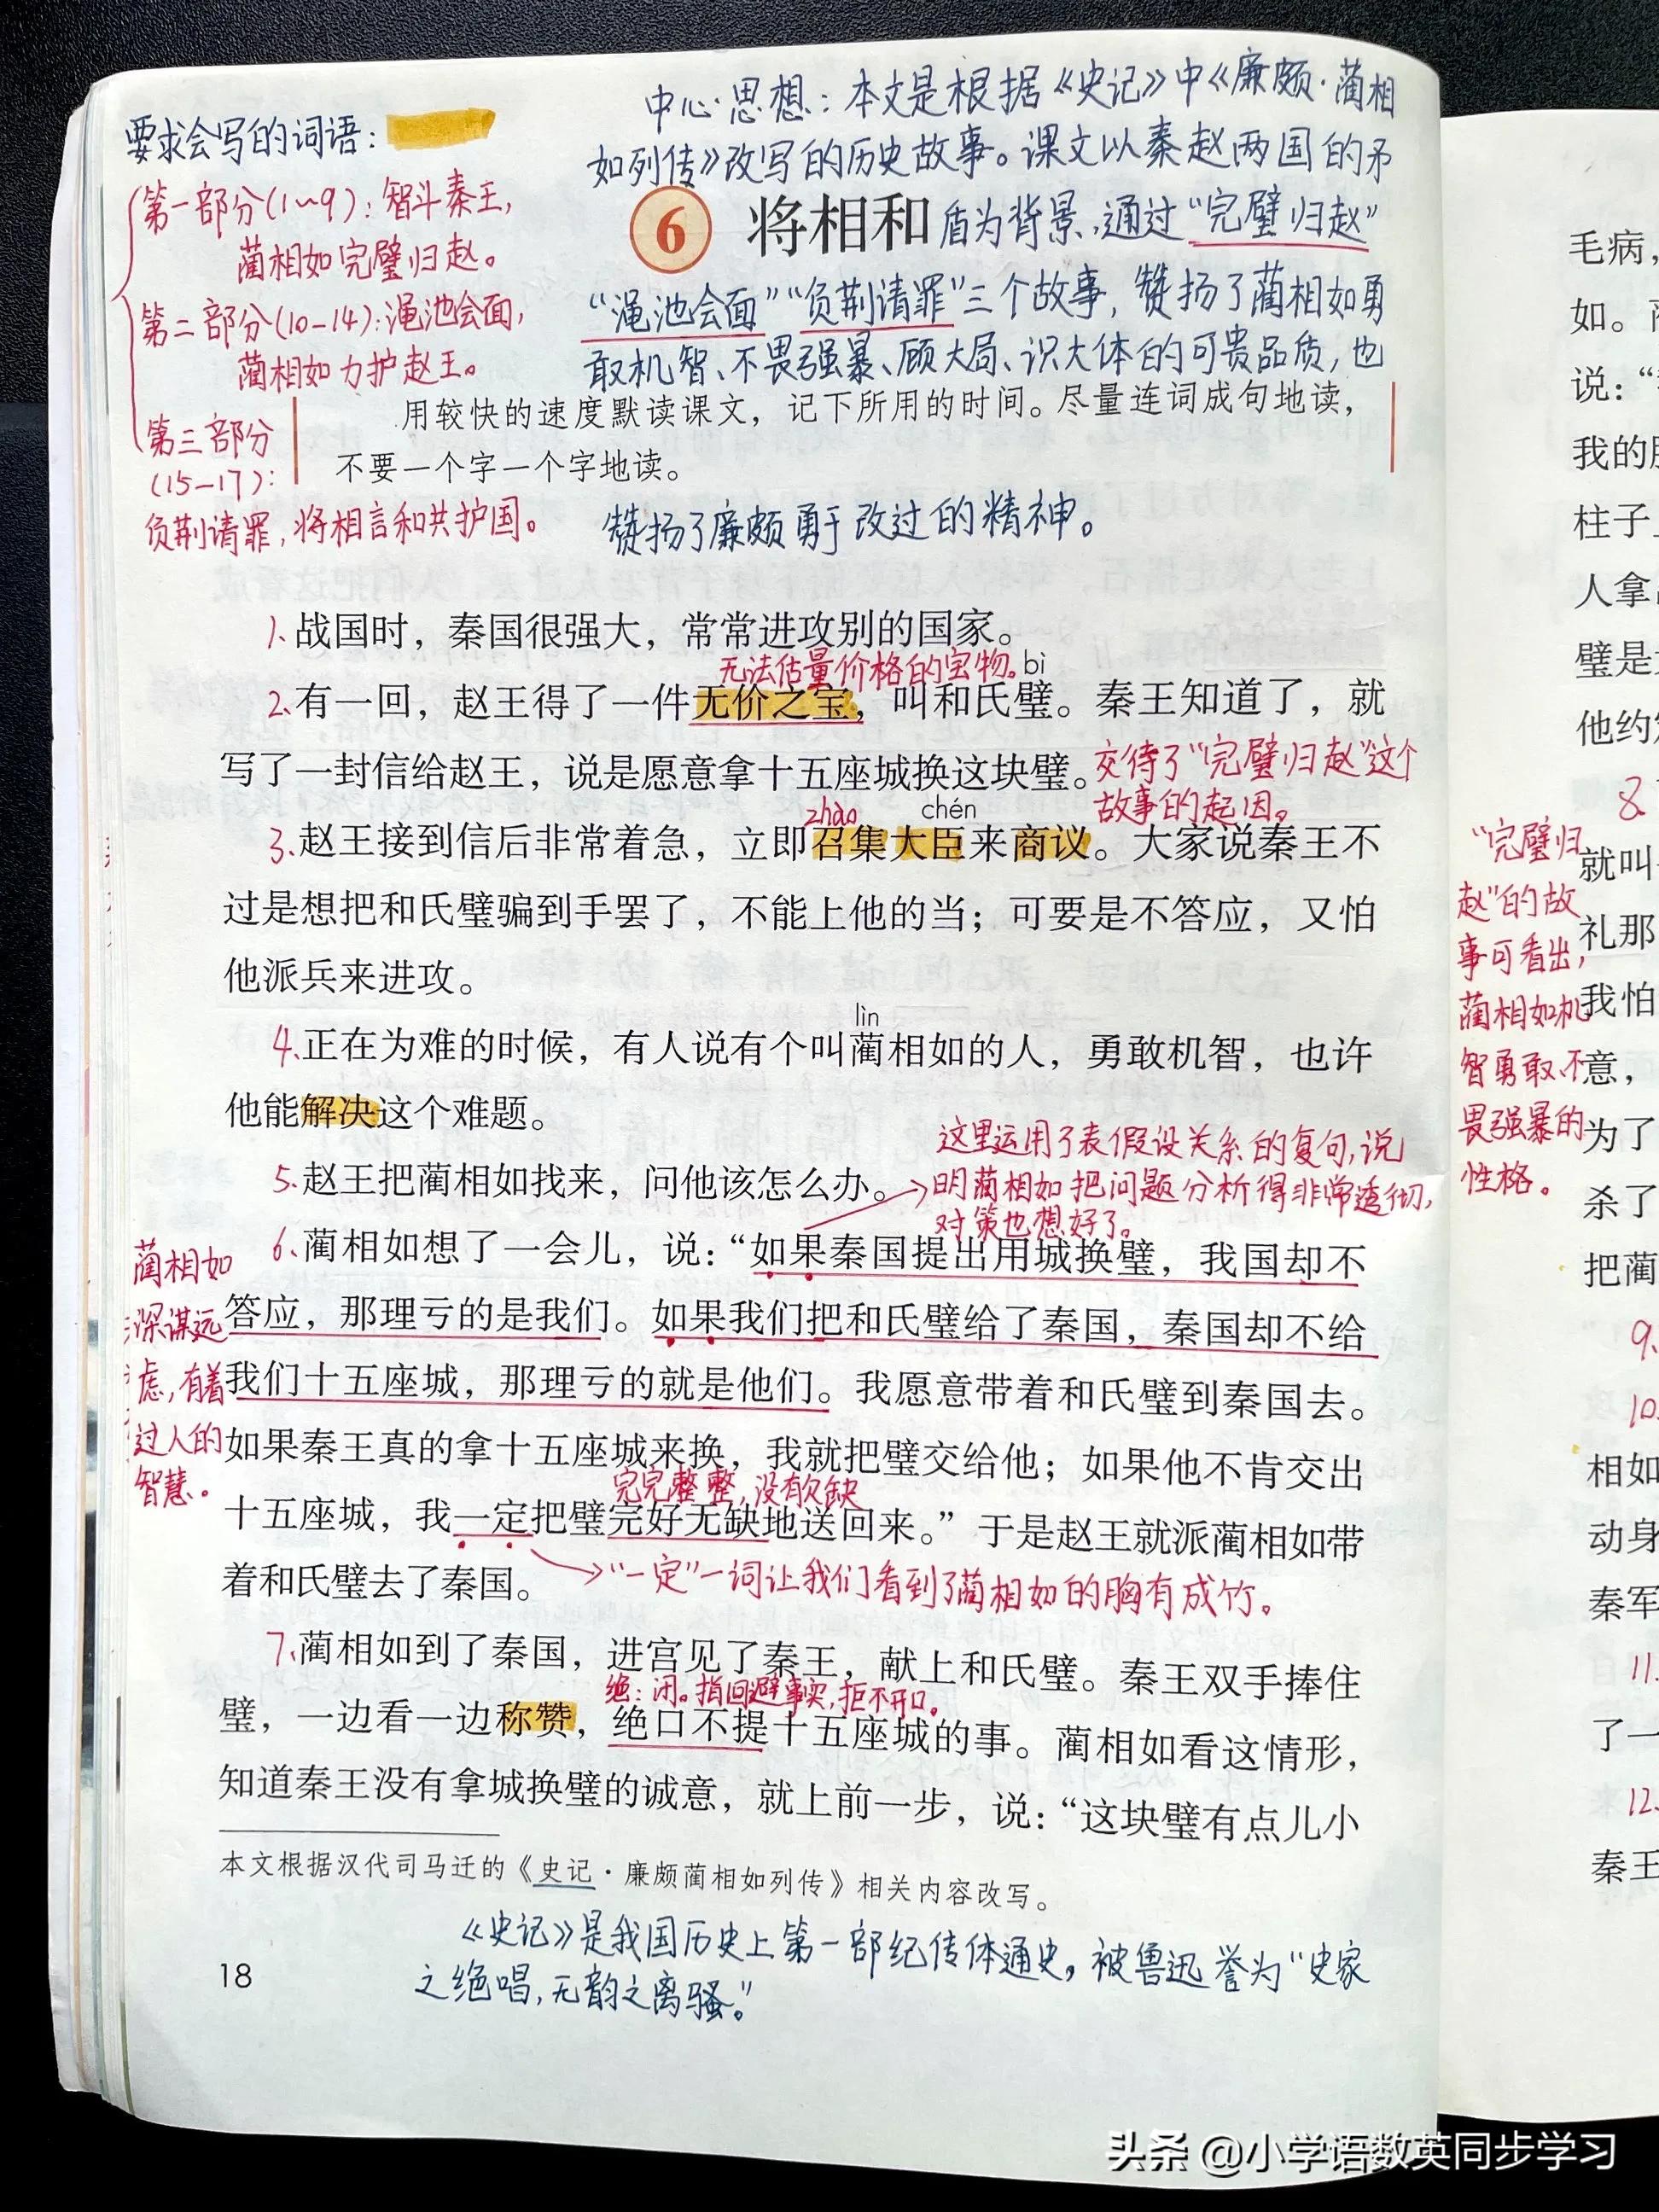 要求会写的词语：
中心思想：本文是根据《史记》中《廉颇·蔺相
如列传》改写的历史故事。课文以秦赵两国的矛
盾为背景，通过“完璧归赵”
“渑池会面”“负荆请罪”三个故事，赞扬了蔺相如勇
敢机智、不畏强暴、顾大局、识大体的可贵品质，也
赞扬了廉颇勇于改过的精神。
第一部分(1~9)：智斗秦王，
蔺相如完璧归赵。
第二部分(10-14)：渑池会面，
蔺相如力护赵王。
第三部分
(15-17)：
负荆请罪，将相言和共护国。
6 将相和
用较快的速度默读课文，记下所用的时间。尽量连词成句地读，
不要一个字一个字地读。
1、战国时，秦国很强大，常常进攻别的国家。
无法估量价格的宝物。 bì
2、有一回，赵王得了一件无价之宝，叫和氏璧。秦王知道了，就
写了一封信给赵王，说是愿意拿十五座城换这块璧。
交待了“完璧归赵”这个
故事的起因。
zhào chén
3、赵王接到信后非常着急，立即召集大臣来商议。大家说秦王不
过是想把和氏璧骗到手罢了，不能上他的当；可要是不答应，又怕
他派兵来进攻。
lìn
4、正在为难的时候，有人说有个叫蔺相如的人，勇敢机智，也许
他能解决这个难题。
5、赵王把蔺相如找来，问他该怎么办。
这里运用了表假设关系的复句，说
明蔺相如把问题分析得非常透彻，
对策也想好了。
6、蔺相如想了一会儿，说：“如果秦国提出用城换璧，我国却不
答应，那理亏的是我们。如果我们把和氏璧给了秦国，秦国却不给
我们十五座城，那理亏的就是他们。我愿意带着和氏璧到秦国去。
如果秦王真的拿十五座城来换，我就把璧交给他；如果他不肯交出
完完整整，没有欠缺
十五座城，我一定把璧完好无缺地送回来。”于是赵王就派蔺相如带
着和氏璧去了秦国。
“一定”一词让我们看到了蔺相如的胸有成竹。
蔺相如
深谋远
虑，有着
过人的
智慧。
7、蔺相如到了秦国，进宫见了秦王，献上和氏璧。秦王双手捧住
绝：闭。指回避事实，拒不开口。
璧，一边看一边称赞，绝口不提十五座城的事。蔺相如看这情形，
知道秦王没有拿城换璧的诚意，就上前一步，说：“这块璧有点儿小
本文根据汉代司马迁的《史记·廉颇蔺相如列传》相关内容改写。
《史记》是我国历史上第一部纪传体通史，被鲁迅誉为“史家
之绝唱，无韵之离骚。”
18
毛病，
如。
说：“
我的
柱子
人拿
璧是
他约
8
就叫
礼那
我怕
意，
为了
杀了
把蔺
9、
10、
相如
动身
秦军
11、
了一
12、
秦王
“完璧归
赵”的故
事可看出，
蔺相如机
智勇敢、不
畏强暴的
性格。
头条 @小学语数英同步学习